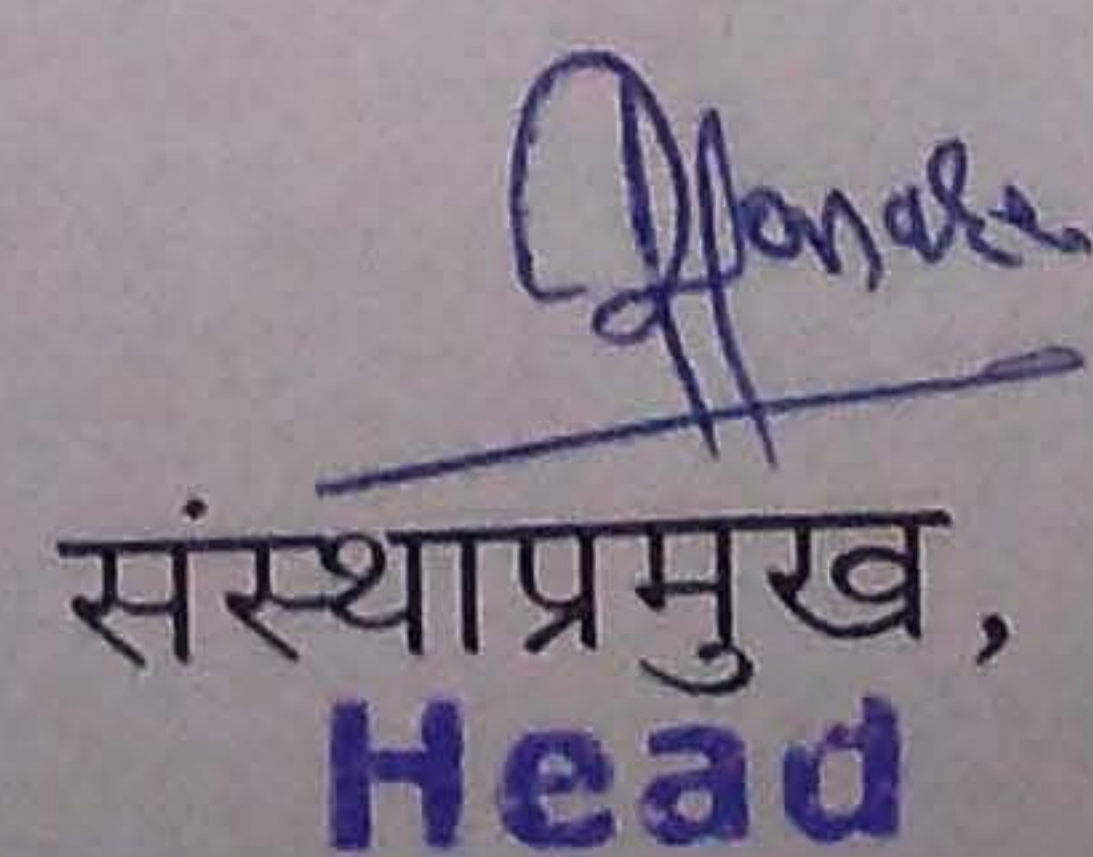 संस्थाप्रमुख,
Head